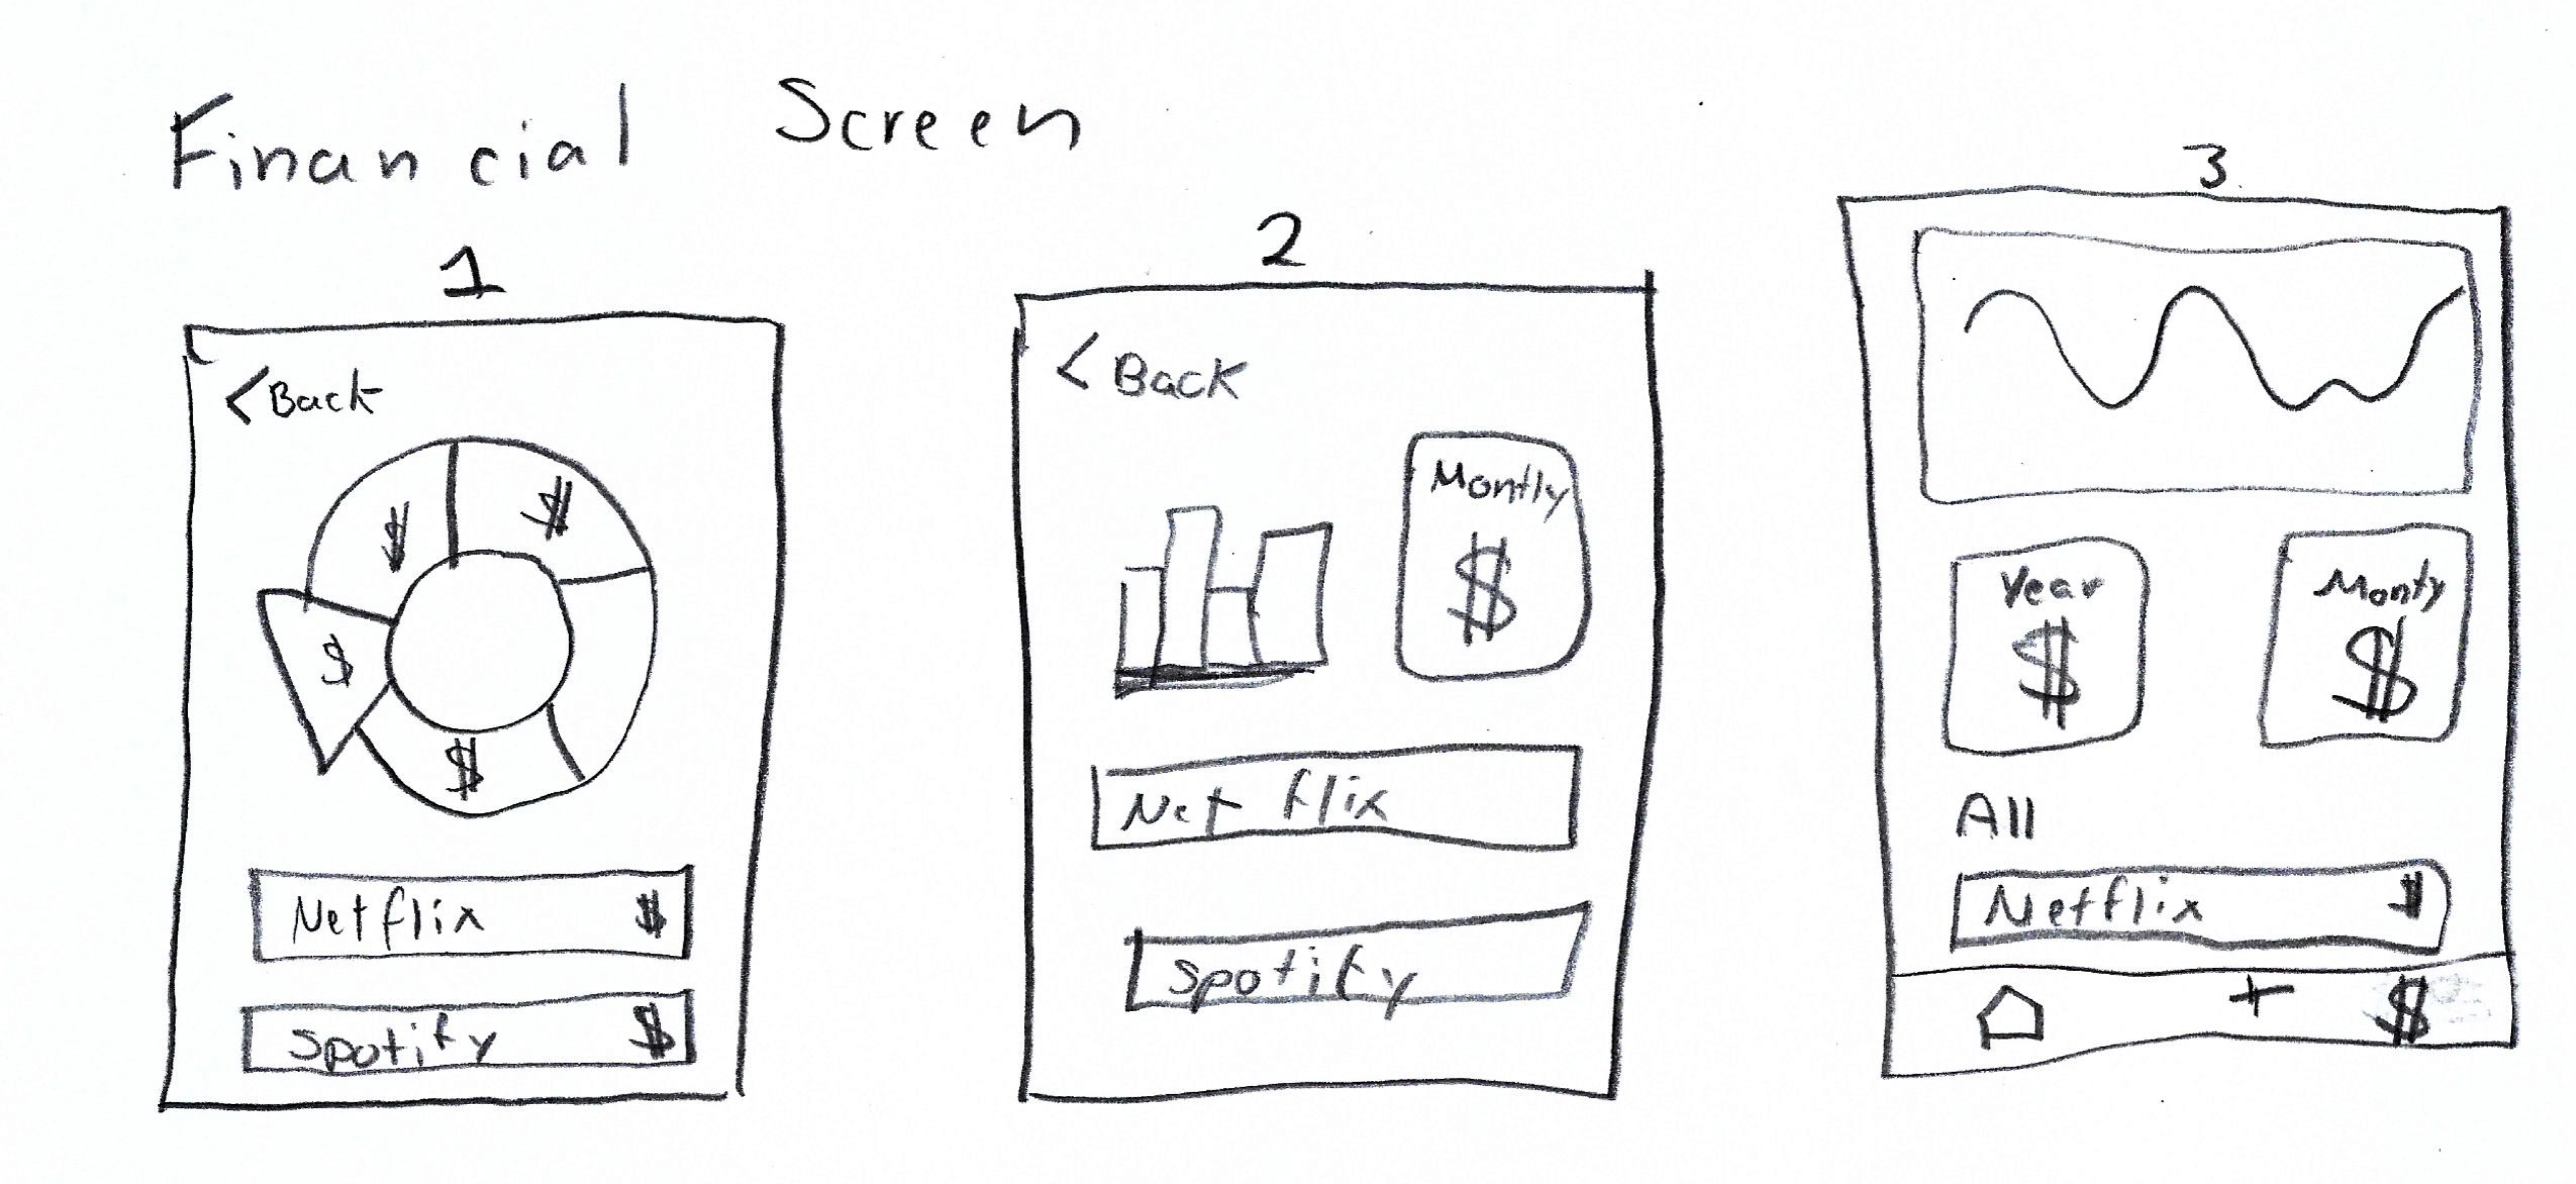 Financial Screen
1
< Back
$ $
$
$
Netflix $
Spotify $
2
< Back
Montly
$
Net flix
Spotify
3
Year
$
Monty
$
All
Netflix $
+ $